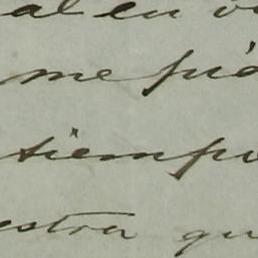 al en
me pid
tiempo
estra qu